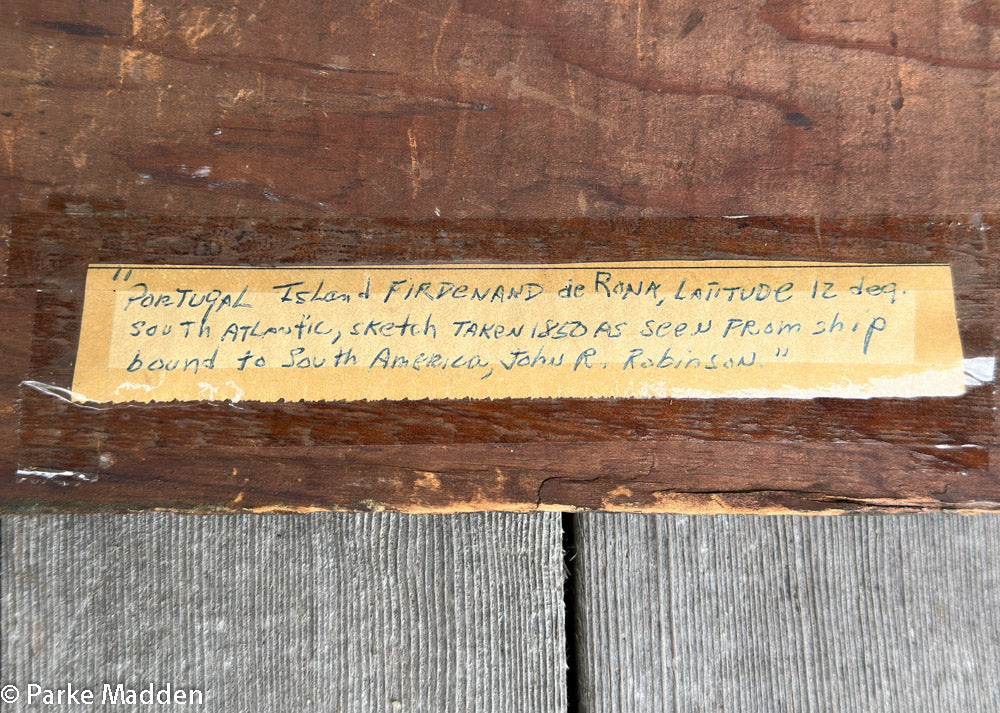 "PORTUGAL Island FIRDENAND de RONA, LATITUDE 12 deg.
South Atlantic, sketch TAKEN 1850 AS seen From ship
bound to South America, John R. Robinson."
© Parke Madden